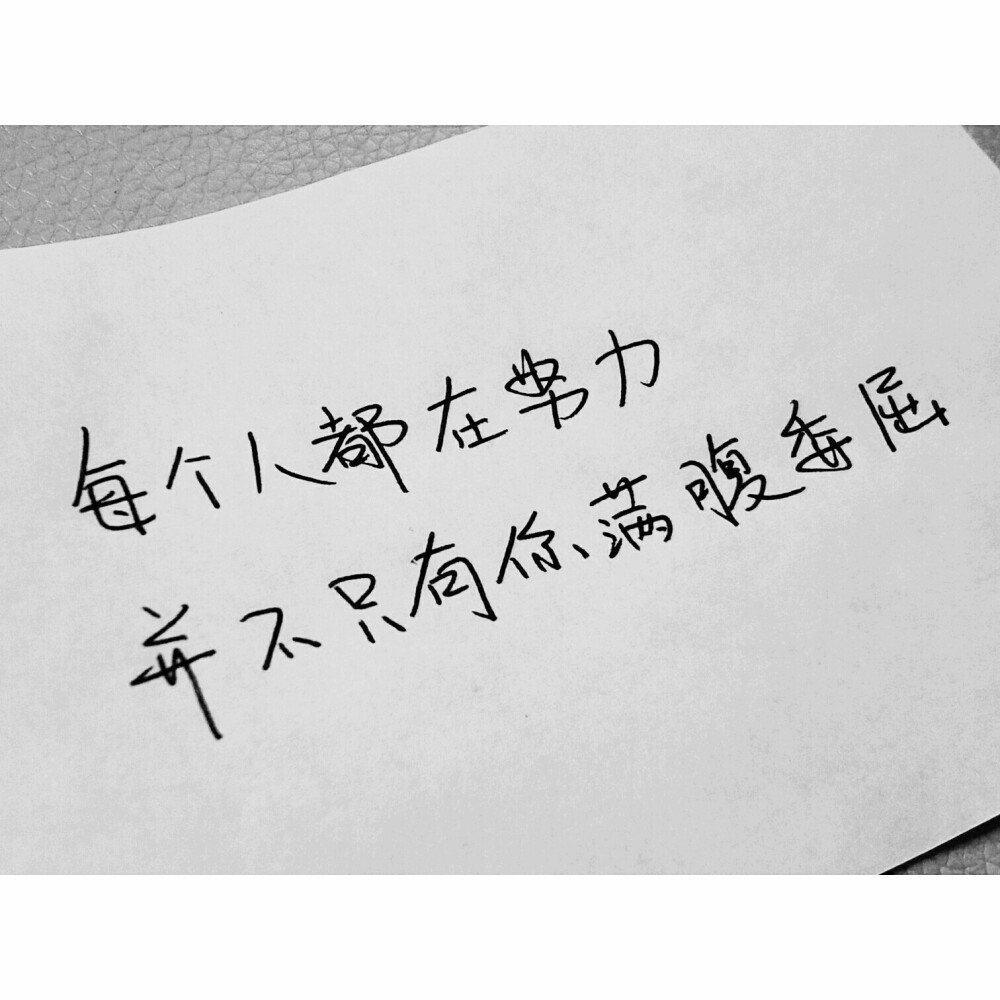 每个人都在努力
并不只有你满腹委屈